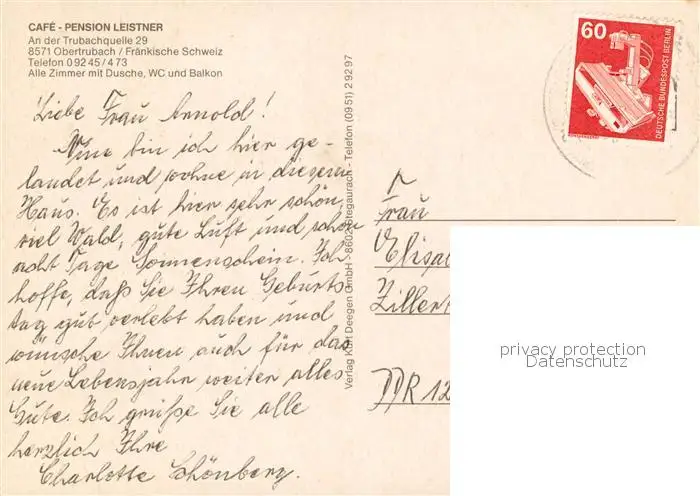 CAFÉ - PENSION LEISTNER
An der Trubachquelle 29
8571 Obertrubach / Fränkische Schweiz
Telefon 0 92 45 / 4 73
Alle Zimmer mit Dusche, WC und Balkon
Liebe Frau Arnold!
Nun bin ich hier ge-
landet und wohne in diesem
Haus. Es ist hier sehr schön
viel Wald, gute Luft und schon
acht Tage Sonnenschein. Ich
hoffe, daß Sie Ihren Geburts
tag gut verlebt haben und
wünsche Ihnen auch für das
neue Lebensjahr weiter alles
Gute. Ich grüße Sie alle
herzlich Ihre
Charlotte Schönberg.
Verlag Kurt Deegen GmbH - 8602 Stegaurach - Telefon (09 51) 2 92 97
60
DEUTSCHE BUNDESPOST BERLIN
Frau
Elisa
Ziller
DDR 12
privacy protection
Datenschutz